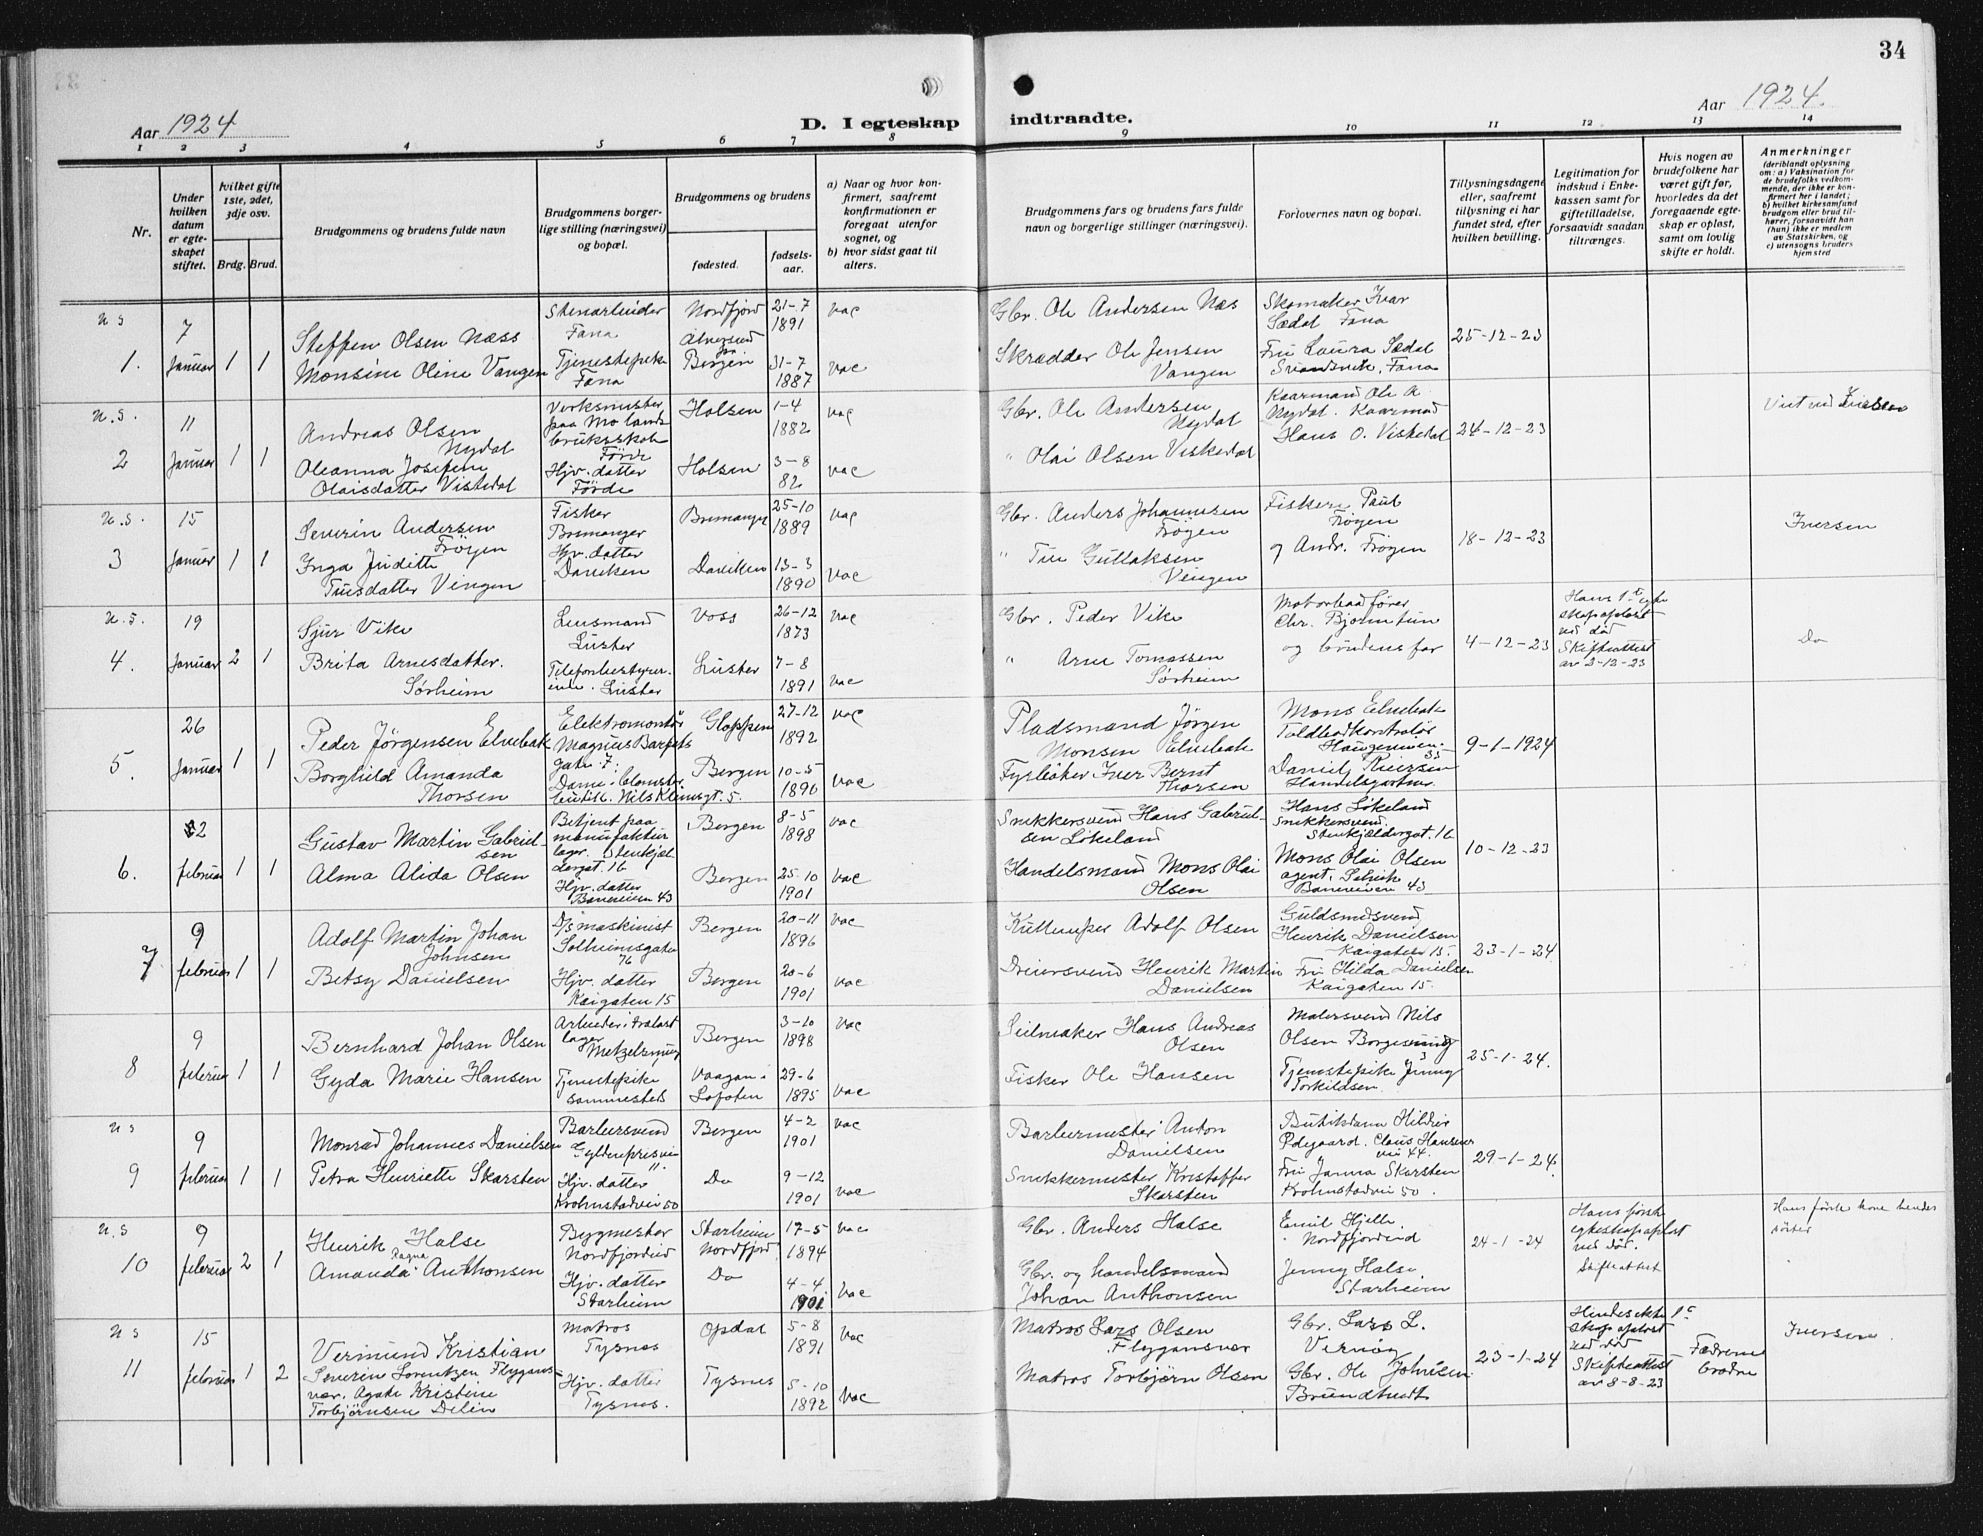 34
Aar 1924
D. I egteskap indtraadte.
Aar 1924.
1 2 3 4 5 6 7 8 9 10 11 12 13 14
Nr.
Under hvilken datum er egteskapet stiftet.
hvilket gifte 1ste, 2det, 3dje osv.
Brdg. Brud.
Brudgommens og brudens fulde navn
Brudgommens borgerlige stilling (næringsvei) og bopæl.
Brudgommens og brudens
fødested.
fødselsaar.
a) Naar og hvor konfirmert, saafremt konfirmationen er foregaat utenfor sognet, og
b) hvor sidst gaat til alters.
Brudgommens fars og brudens fars fulde navn og borgerlige stillinger (næringsvei).
Forlovernes navn og bopæl.
Tillysningsdagene eller, saafremt tillysning ei har fundet sted, efter hvilken bevilling.
Legitimation for indskud i Enkekassen samt for giftetilladelse, forsaavidt saadan tiltrænges.
Hvis nogen av brudefolkene har været gift før, hvorledes da det foregaaende egteskap er opløst, samt om lovlig skifte er holdt.
Anmerkninger
(deriblandt oplysning om: a) Vaksination for de brudefolks vedkommende, der ikke er konfirmert her i landet; b) hvilket kirkesamfund brudgom eller brud tilhører, forsaavidt han (hun) ikke er medlem av Statskirken, og c) utensogns bruders hjemsted
u s
1. 7 Januar 1 1
Steffen Olsen Næss
Monsine Oline Vangen
Stenarbeider
Fana
Tjenestepike
Fana
Nordfjord
Alversund
Bergen
21-7
1891
31-7
1887
vac
vac
Gbr. Ole Andersen Næs
Skrædder Ole Jensen
Vangen
Skomaker Ivar
Sædal Fana
Fru Laura Sædal
Fana
25-12-23
u.s.
2 11 Januar 1 1
Andreas Olsen
Nydal
Oleanna Josefine
Olaisdatter Viskedal
Verksmester
paa Mo landbruksskole
Förde
Hjv. datter
Förde
Holsen
Holsen
1-4
1882
3-8
82
vac
vac
Gbr. Ole Andersen
Nydal
" Olai Olsen Viskedal
Kaarmand Ole A.
Nydal. Kaarmand
Hans O. Viskedal
24-12-23
Viet ved Iversen
u.s.
3 15 Januar 1 1
Severin Andersen
Frøyen
Inga Juditte
Tuesdatter Vingen
Fisker
Bremanger
Hjv. datter
Bremanger
25-10
1889
13-3
1890
vac
vac
Gbr. Anders Johannesen
Frøyen
" Tue Gullaksen
Vingen
Fiskere Paul
Frøyen
og Andr. Frøyen
18-12-23
Iversen
u.s.
4. 19 Januar 2 1
Sjur Vike
Brita Arnesdatter.
Sørheim
Lensmand
Luster
Telefonbestyrerinde. Luster
Voss
Luster
26-12
1873
7-8
1891
vac
vac
Gbr. Peder Vike
" Arne Tomassen
Sørheim
Motorbaadfører
Chr. Bjørnetun
og brudens far
4-12-23
Hans 1ste egteskap opløst
ved død
Skifteattest
av 3-12-23
Do
5. 26 Januar 1 1
Peder Jörgensen Elvebak
Borghild Amanda
Thorsen
Elektromontør
Magnus Barfots
gate 7.
Dame i blomsterbutik. Nils Klimsgt. 5.
Gloppen
Bergen
27-12
1892
10-5
1890
vac
vac
Pladsmand Jørgen
Monsen Elvebak
Fyrbøter Iver Bernt
Thorsen
Mons Elvebak
Toldbodkontrolør
Haugeveien
33
Daniel Iversen
9-1-1924
6. 2 februar 1 1
Gustav Martin Gabrielsen
Alma Alida Olsen
Betjent paa
manufakturlager. Stenkjældergt. 16
Hjv. datter
Baneveien 43
Bergen
Bergen
8-5
1898
25-10
1901
vac
vac
Snekkersvend Hans Gabrielsen Løkeland
Handelsmand Mons Olai
Olsen
Hans Løkeland
Snekkersvend.
Stenkjældergt. 16
Mons Olai Olsen
agent.
Baneveien 43
10-12-23
7 9 februar 1 1
Adolf Martin Johan
Johnsen
Betsy Danielsen
D/S maskinist
Solheimsgate
76
Hjv. datter
Kaigaten 15
Bergen
Bergen
20-11
1896
20-6
1901
vac
vac
Kullemper Adolf Olsen
Dreiersvend Henrik Martin
Danielsen
Guldsmedsvend
Henrik Danielsen
Kaigaten 15.
Fru Hilda Danielsen
Kaigaten 15.
23-1-24
8 9 februar 1 1
Bernhard Johan Olsen
Gyda Marie Hansen
Arbeider i trælastlager
Tjenestepike
sammesteds
Bergen
Vaagan i
Lofoten
3-10
1898
29-6
1895
vac
vac
Seilmaker Hans Andreas
Olsen
Fisker Ole Hansen
Malersvend Nils
Olsen
3
Tjenestepike Jenny
Torkildsen.
25-1-24.
u s
9 9 februar 1 1
Monrad Johannes Danielsen
Petra Henriette Skarsten
Barbersvend
Hjv. datter
Krohnstadvei 50
Bergen
Do
4-2
1901
9-12
1901
vac
vac
Barbermester Anton
Danielsen
Snekkermester Kristoffer
Skarsten
Butikdame Hildur
Ødegaard. Claus Hansens
vei 44.
Fru Janna Skarsten
Krohnstadvei 50.
29-1-24.
u.s
10 9 februar 2 1
Henrik Halse
Amanda Ragna Anthonsen
Bygmester
Nordfjordeid
Hjv. datter
Starheim
Starheim
Nordfjord
Do
17-5
1894
4-4
1901
vac
vac
Gbr. Anders Halse
Gbr. og handelsmand
Johan Anthonsen
Emil Hjelle.
Nordfjordeid
Jenny Halse
Starheim
24-1-24
Hans første
egteskap opløst
ved død.
Skifteattest
Hans første kone hendes
søster
u s
11 15 februar 1 2
Vermund Kristian
Severin Lorentzen Flygansvær. Agate Kristine
Torbjørnsen Delin
Matros
Tysnes
Hjv. datter
Tysnes.
Opdal
Tysnes
5-8
1891
5-10
1892
vac
vac
Matros Lars Olsen
Flygansvær
Matros Torbjørn Olsen
Gbr. Lars L.
Vernøy
Gbr. Ole Johnsen
Brundtvedt
23-1-24
Hendes 1ste ekteskap opløst
ved død
Skifteattest
av 8-8-23
Fædrene
brødre
Iversen.